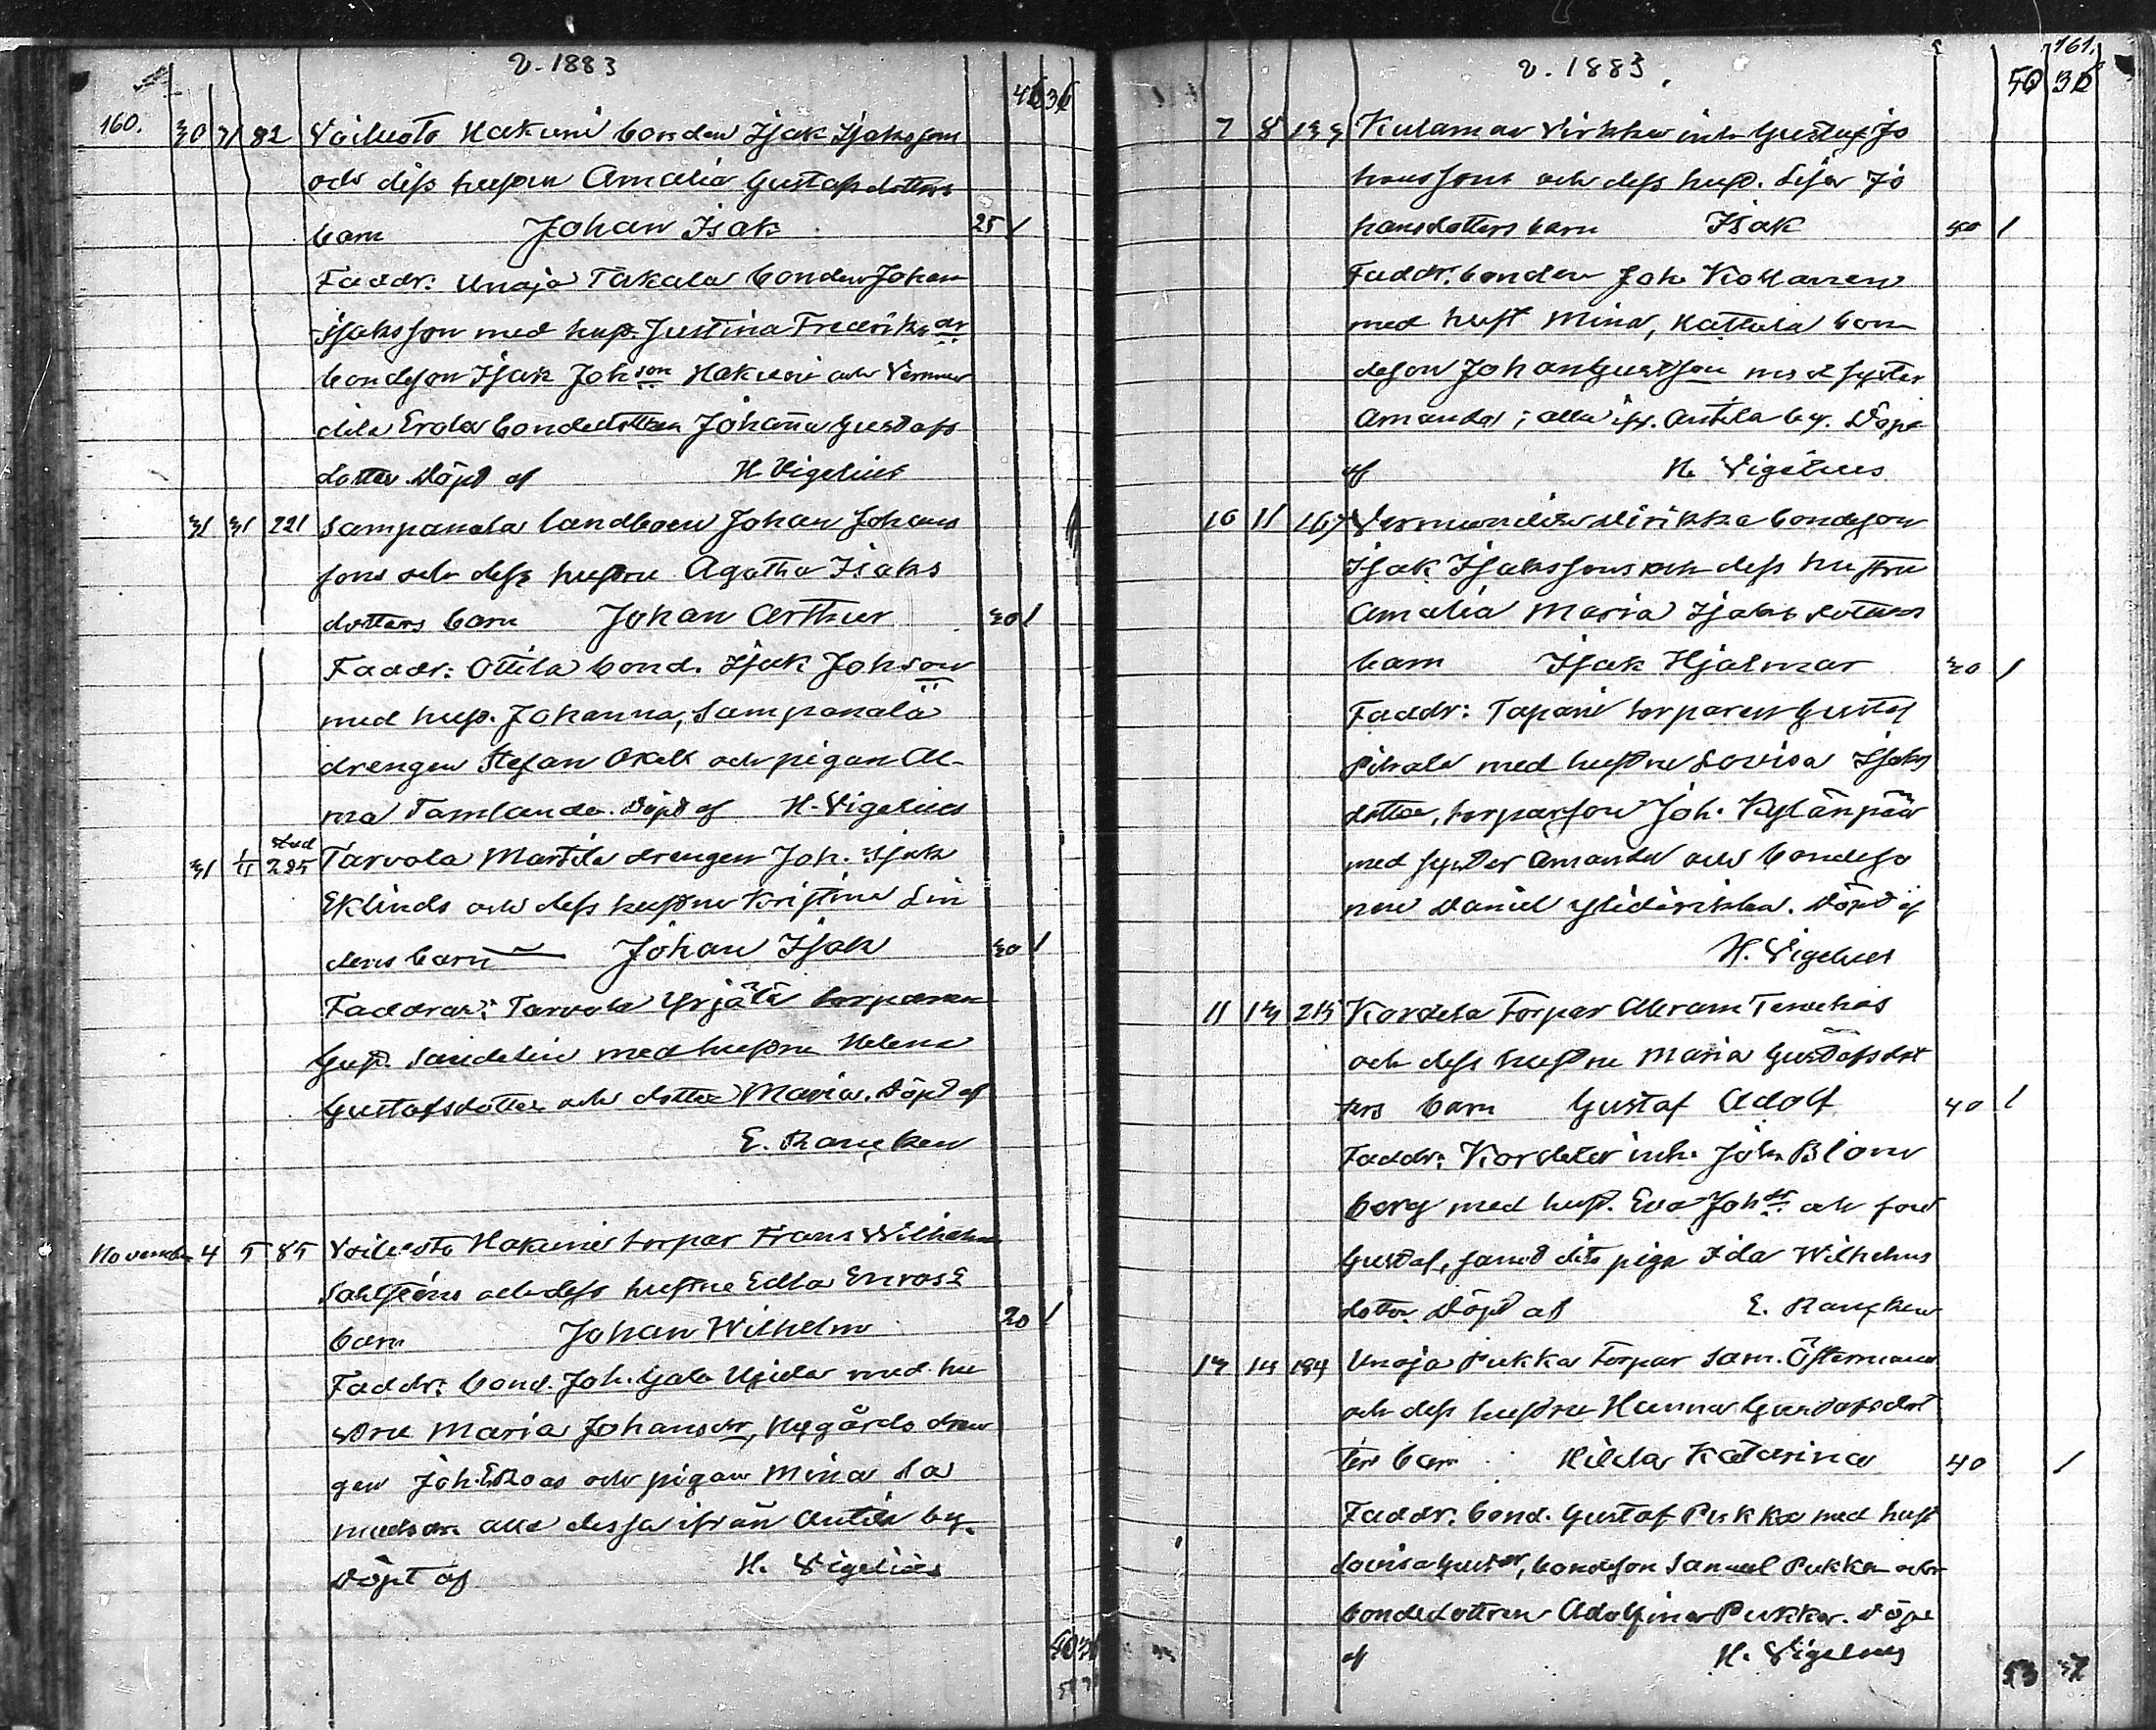 v. 1883
160. 30 31 82 Voiluoto Hakuni bonden Isak Isaksson
och dess hustru Amalia Gustafsdotters
barn Johan Isak 25 1
Faddr: Unaja Takala bonden Johan
Isaksson med hust. Justina Fredriksdr
bondeson Isak Johson Hakuni och Vermun
dila Erola bondedottren Johanna Gustafs
dotter. Döpt af H. Vigelius
31 31 221 Sampanala landboen Johan Johans
sons och dess hustru Agatha Isaks
dotters barn Johan Arthur 30 1
Faddr: Ottila bond. Isak Johson
med hust. Johanna, Sampanala
drengen Stefan och pigan Al-
ma Tamlander. Döpt af H. Vigelius
31 1/11 Stad 225 Tarvola Marttila drengen Joh. Isak
Eklinds och dess hustru Kristina Lin
dens barn Johan Isak 30 1
Faddrar: Tarvola Yrjätä torparen
Gust. Sandelin med hustru Helena
Gustafsdotter och dotter Maria. Döpt af
E. Rancken
November 4 5 85 Voiluoto Hakuni torpar Frans Wilhelm
Sahlsténs och dess hustru Edla Enros
barn Johan Wilhelm 20 1
Faddr: bond. Joh. Gabr. Ujula med hu
stru Maria Johansdr, Nygårds dren
gen Joh. och pigan Mina Sa
muelsdr. alla dessa ifrån Anttila by.
Döpt af H. Vigelius
v. 1883. 161.
7 8 133 Kulamaa Virkka inh Gustaf Jo
hanssons och dess hust. Lisa Jo
hansdotters barn Isak 40 1
Faddr: bonden Joh
med hust Mina, Kattila bon
deson Johan Gustson med syster
Amanda; alla ifr. Anttila by. Döpt
af H. Vigelius
10 11 167 Vermundila Ylirikka bondeson
Isak Isakssons och dess hustru
Amalia Maria Isaksdotters
barn Isak Hjalmar 30 1
Faddr: Tapani torparen Gustaf
Pihala med hustru Lovisa Isaks
dotter, torparson Joh. Kylänpää
med syster Amanda och bondeso
nen Daniel Ylirikka. Döpt af
H. Vigelius
11 13 215 Kordela torpar Abram
och dess hustru Maria Gustafsdot
ters barn Gustaf Adolf 40 1
Faddr: Kordela inh. Joh. Blom
berg med hust. Eva Johdr och son
Gustaf, samt dito piga Ida Wilhelms
dotter. Döpt af E. Rancken
13 14 184 Unaja Pukka torpar Sam. Östermans
och dess hustru Hanna Gustafsdot
ters barn Hilda Katarina 40 1
Faddr: bond. Gustaf Pukka med hust
Lovisa Gustdr, bondeson Samuel Pukka och
bondedottren Adolfina Pukka. Döpt
af H. Vigelius
53 37